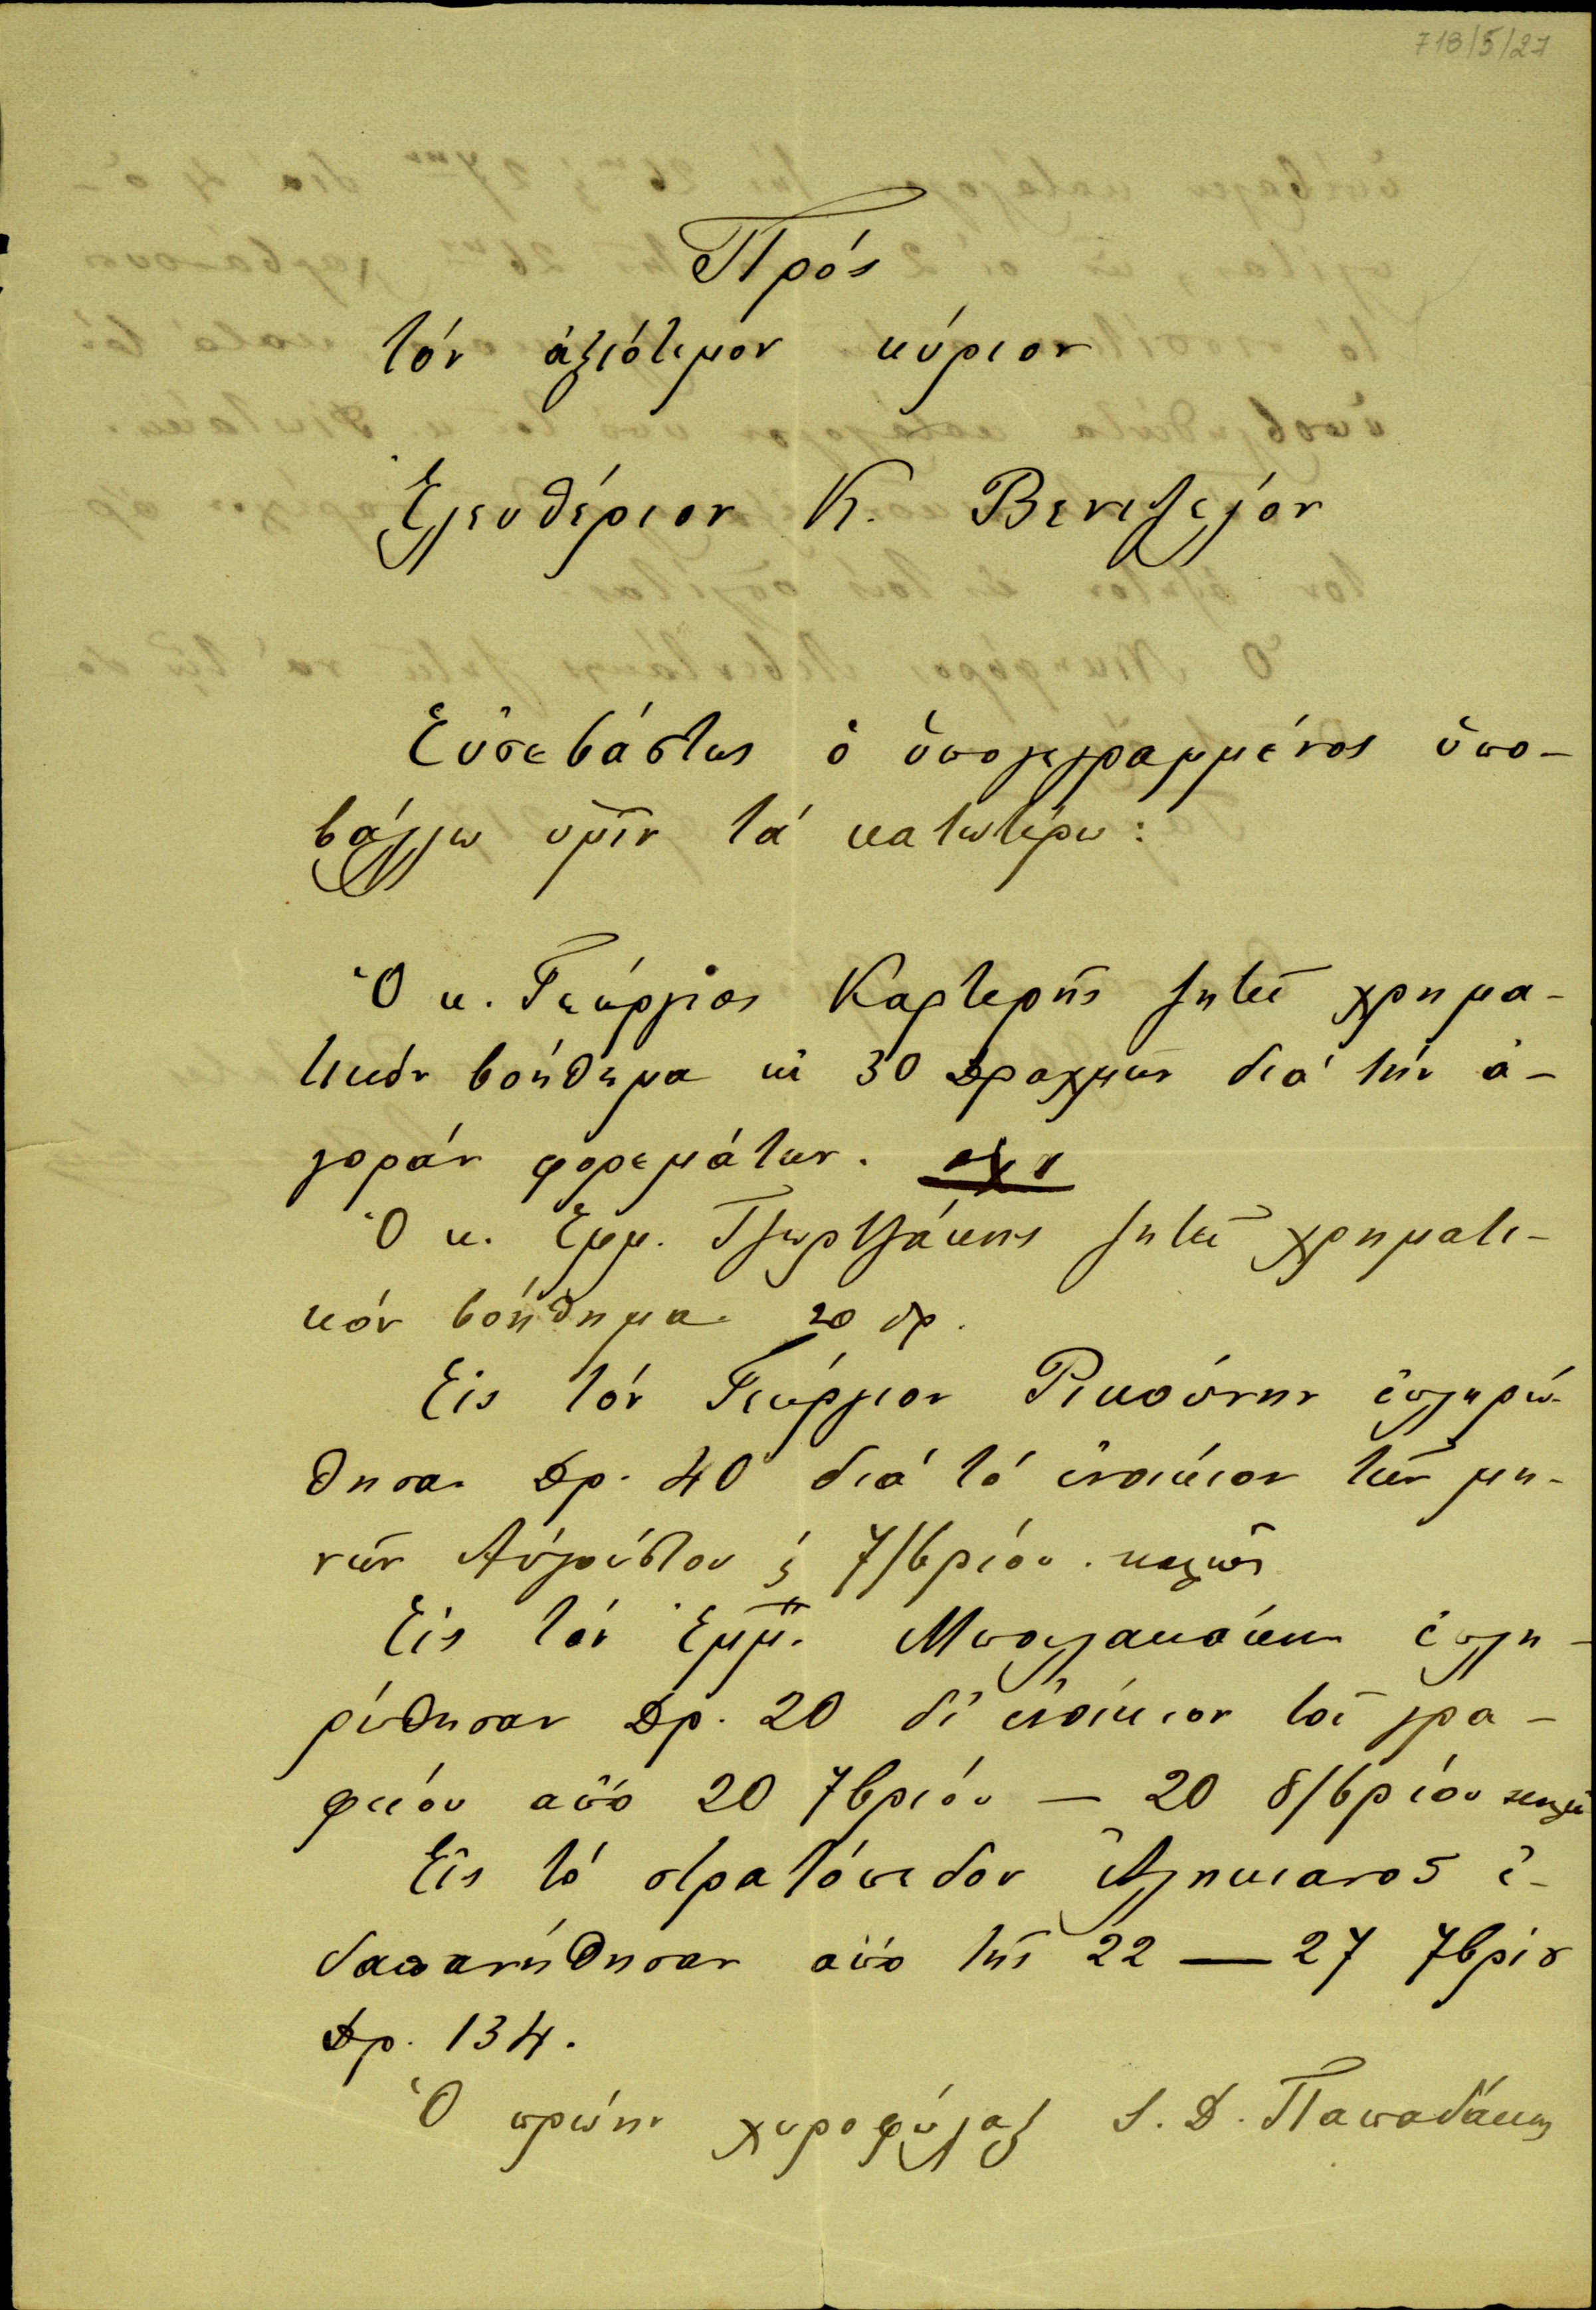 718/5/27
Πρός
τόν ἀξιότιμον κύριον
Ἐλευθέριον Κ. Βενιζελόν
Εὐσεβάστως ὁ ὑπογεγραμμένος ὑπο-
βάλλω ὑμῖν τά κατωτέρω:
Ὁ κ. Γεώργιος Καρτερής ζητεῖ χρημα-
τικόν βοήθημα ἐκ 30 Δραχμῶν διά τήν ἀ-
γοράν φορεμάτων. οχι
Ὁ κ. Ἐμμ. Τζωρτζάκης ζητεῖ χρηματι-
κόν βοήθημα. 20 δρ.
Εἰς τόν Γεώργιον ἐπληρώ-
θησαν Δρ. 40 διά τό ἐνοίκιον τῶν μη-
νῶν Αὐγούστου ϗ 7/βρίου. καλῶς
Εἰς τόν Ἐμμ. ἐπλη-
ρώθησαν Δρ. 20 δι' ἐνοίκιον τοῦ γρα-
φείου ἀπό 20 7βρίου — 20 8/βρίου καλῶς
Εἰς τό στρατόπεδον Ἀληκιανοῦ ἐ-
δαπανήθησαν ἀπό τῆς 22 — 27 7βρίου
Δρ. 134.
Ὁ πρώην χωροφύλαξ Ι. Δ. Παπαδάκης